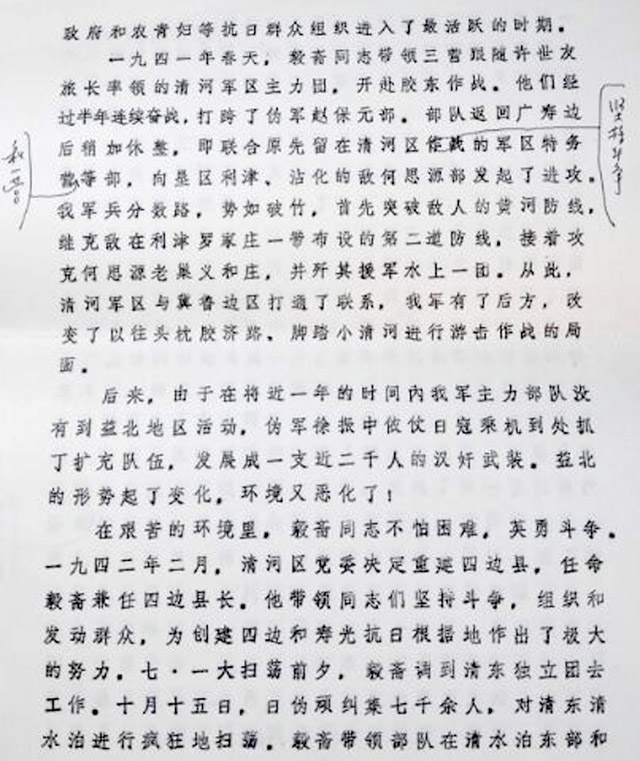 政府和农青妇等抗日群众组织进入了最活跃的时期。
一九四一年春天，毅斋同志带领三营跟随许世友
旅长率领的清河军区主力团，开赴胶东作战。他们经
过半年连续奋战，打跨了伪军赵保元部。部队返回广寿边
后稍加休整，即联合原先留在清河区作战的军区特务
营等部，向垦区利津、沾化的敌何思源部发起了进攻。
我军兵分数路，势如破竹，首先突破敌人的黄河防线，
继克敌在利津罗家庄一带布设的第二道防线，接着攻
克何思源老巢义和庄，并歼其援军水上一团。从此，
清河军区与冀鲁边区打通了联系，我军有了后方，改
变了以往头枕胶济路、脚踏小清河进行游击作战的局
面。
后来，由于在将近一年的时间内我军主力部队没
有到益北地区活动，伪军徐振中依仗日寇乘机到处抓
丁扩充队伍，发展成一支近二千人的汉奸武装。益北
的形势起了变化，环境又恶化了！
在艰苦的环境里，毅斋同志不怕困难，英勇斗争。
一九四二年二月，清河区党委决定重建四边县，任命
毅斋兼任四边县长。他带领同志们坚持斗争，组织和
发动群众，为创建四边和寿光抗日根据地作出了极大
的努力。七·一大扫荡前夕，毅斋调到清东独立团去
工作。十月十五日，日伪顽纠集七千余人，对清东清
水泊进行疯狂地扫荡。毅斋带领部队在清水泊东部和
坚持斗争
和一营